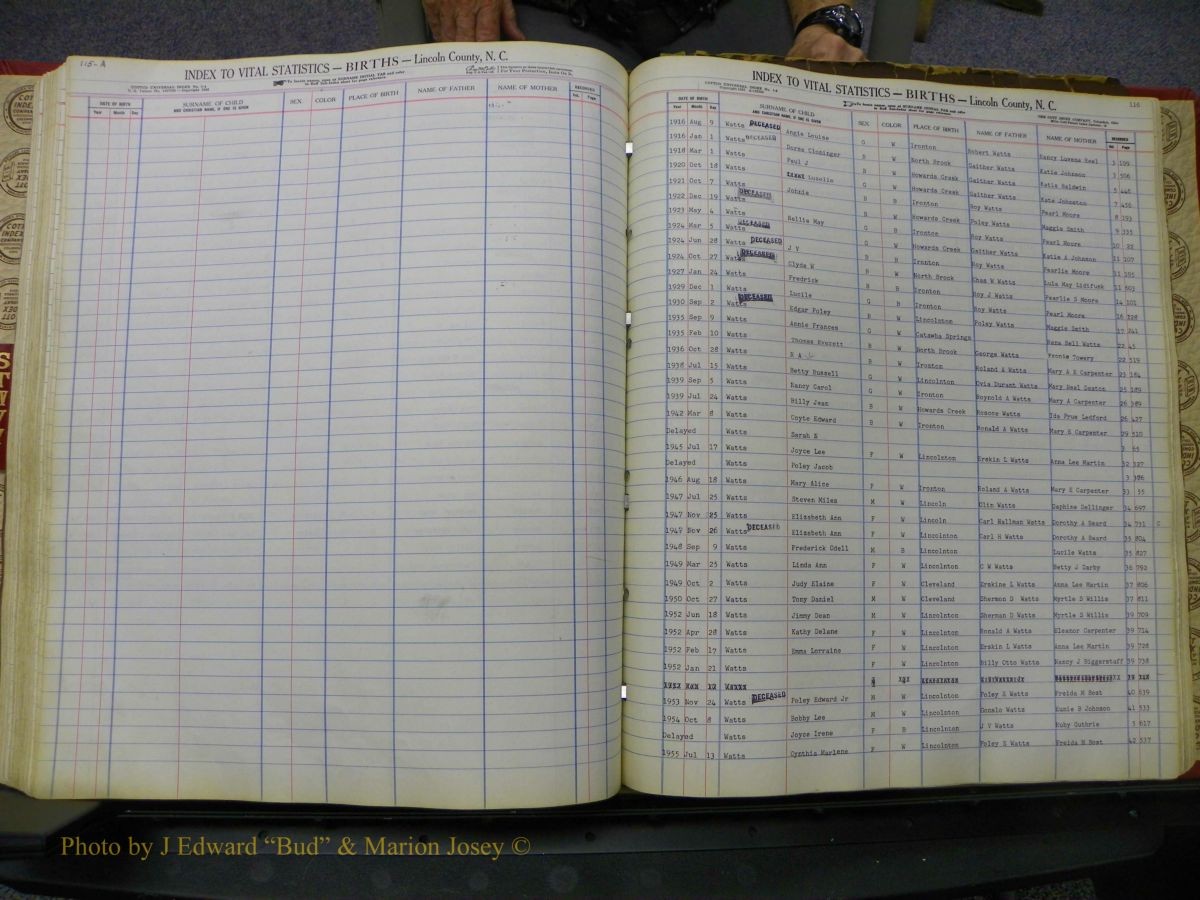 115-A
INDEX TO VITAL STATISTICS — BIRTHS — Lincoln County, N. C.
DATE OF BIRTH SURNAME OF CHILD AND CHRISTIAN NAME, IF ONE IS GIVEN SEX COLOR PLACE OF BIRTH NAME OF FATHER NAME OF MOTHER RECORDED
Year Month Day Vol. Page
INDEX TO VITAL STATISTICS — BIRTHS — Lincoln County, N. C. 116
DATE OF BIRTH SURNAME OF CHILD AND CHRISTIAN NAME, IF ONE IS GIVEN SEX COLOR PLACE OF BIRTH NAME OF FATHER NAME OF MOTHER RECORDED
Year Month Day Vol. Page
1916 Aug 9 Watts DECEASED Angie Louise G W Ironton Robert Watts Nancy Luvena 3 199
1916 Jan 1 Watts DECEASED Cloninger B W North Brook Gaither Watts Katie Johnson 3 506
1918 Mar 1 Watts Paul J B W Howards Creek Gaither Watts Katie Baldwin 5 445
1920 Oct 18 Watts Luzelle G W Howards Creek Gaither Watts Kate Johnston 7 456
1921 Oct 7 Watts Johnie B B Ironton Roy Watts Pearl Moore 8 193
1922 Dec 19 Watts DECEASED B W Howards Creek Foley Watts Maggie Smith 9 335
1923 May 4 Watts Hallie May G B Ironton Roy Watts Pearl Moore 10 22
1924 Mar 5 Watts DECEASED G W Howards Creek Gaither Watts Katie A Johnson 11 107
1924 Jun 28 Watts DECEASED J V B B Ironton Roy Watts Pearlie Moore 11 195
1924 Oct 27 Watts DECEASED Clyde W B W North Brook Chas W Watts Lula May 11 503
1927 Jan 24 Watts Fredrick B B Ironton Roy J Watts Pearlie S Moore 14 101
1929 Dec 1 Watts Lucile G B Ironton Roy Watts Pearl Moore 16 228
1930 Sep 2 Watts DECEASED Edgar Foley B W Lincolnton Foley Watts Maggie Smith 17 241
1935 Sep 9 Watts Annie Frances G W Catawba Springs Bell Watts 22 45
1935 Feb 10 Watts Thomas Everett B W North Brook George Watts Towery 22 519
1936 Oct 28 Watts R A B W Ironton Roland A Watts Mary A E Carpenter 23 184
1938 Jul 15 Watts Betty Russell G W Lincolnton Ovia Durant Watts Mary Neal Sexton 25 189
1939 Sep 5 Watts Nancy Carol G W Ironton Roynold A Watts Mary A Carpenter 26 389
1939 Jul 24 Watts Billy Jean B W Howards Creek Roscoe Watts Ida Prue Ledford 26 427
1942 Mar 8 Watts Coyte Edward B W Ironton Ronald A Watts Mary E Carpenter 29 510
Delayed Watts Sarah N 3 65
1945 Jul 17 Watts Joyce Lee F W Lincolnton Erskin L Watts Anna Lee Martin 32 327
Delayed Watts Foley Jacob 3 386
1946 Aug 18 Watts Mary Alice F W Ironton Roland A Watts Mary E Carpenter 33 55
1947 Jul 25 Watts Steven Miles M W Lincoln Olin Watts Daphine Dellinger 34 697
1947 Nov 25 Watts Elizabeth Ann F W Lincoln Carl Hallman Watts Dorothy A Beard 34 731
1947 Nov 26 Watts DECEASED Elizabeth Ann F W Lincolnton Carl H Watts Dorothy A Beard 35 804
1948 Sep 9 Watts Frederick Odell M B Lincolnton Lucile Watts 35 827
1949 Mar 25 Watts Linda Ann F W Lincolnton C W Watts Betty J Darby 36 792
1949 Oct 2 Watts Judy Elaine F W Cleveland Erskine L Watts Anna Lee Martin 37 806
1950 Oct 27 Watts Tony Daniel M W Cleveland Shermon D Watts Myrtle S Willis 37 811
1952 Jun 18 Watts Jimmy Dean M W Lincolnton Sherman D Watts Myrtle S Willis 39 709
1952 Apr 28 Watts Kathy Delane F W Lincolnton Ronald A Watts Eleanor Carpenter 39 714
1952 Feb 17 Watts Emma Lorraine F W Lincolnton Erskin L Watts Anna Lee Martin 39 728
1952 Jan 21 Watts F W Lincolnton Billy Otto Watts Nancy J Biggerstaff 39 738
1953 Nov 24 Watts DECEASED Foley Edward Jr M W Lincolnton Foley E Watts Freida M Best 40 639
1954 Oct 8 Watts Bobby Lee M W Lincolnton Donald Watts Eunie B Johnson 41 533
Delayed Watts Joyce Irene F B Lincolnton J V Watts Ruby Guthrie 3 617
1955 Jul 13 Watts Cynthia Marlene F W Lincolnton Foley E Watts Freida M Best 42 537
Photo by J Edward “Bud” & Marion Josey ©